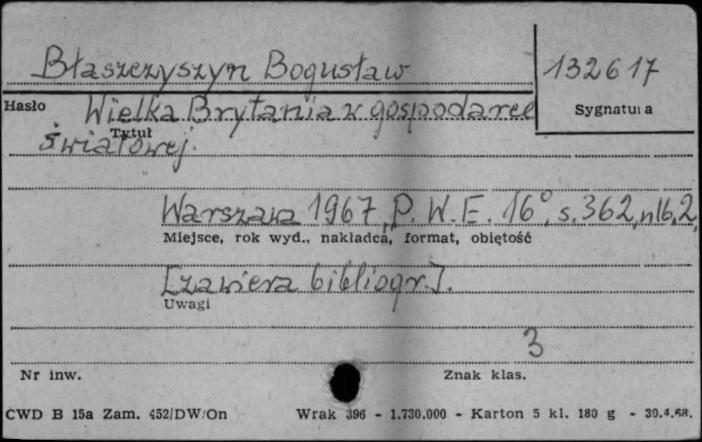 Błaszczyszyn Bogusław
132617
Hasło
Wielka Brytania w gospodarce
Sygnatura
Tytuł
światowej.
Warszawa 1967, P. W. E. 16°, s. 362, nlb. 2,
Miejsce, rok wyd., nakładca, format, objętość
[zawiera bibliogr.].
Uwagi
3
Nr inw.
Znak klas.
CWD B 15a Zam. 452/DW/On Wrak 396 - 1.730.000 - Karton 5 kl. 180 g - 30.4.68.